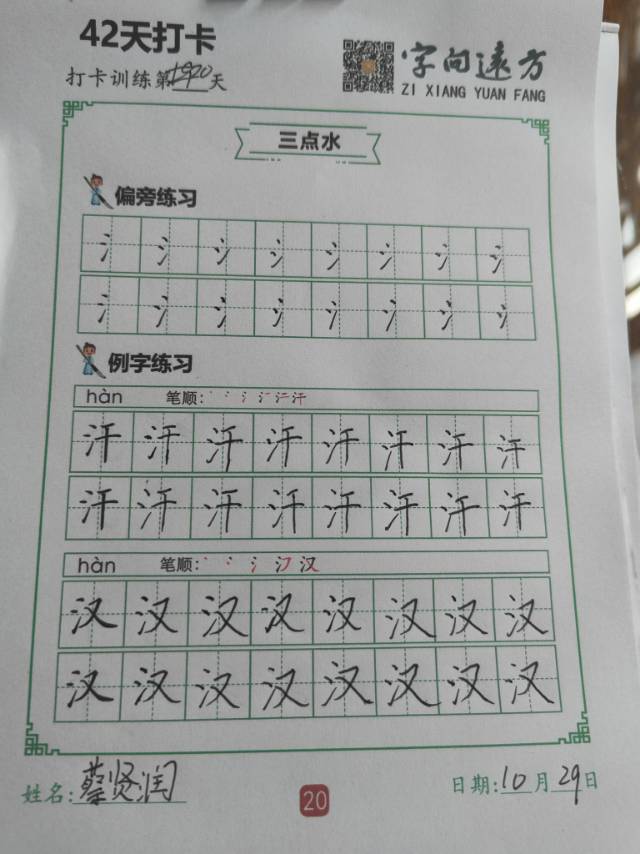 42天打卡
打卡训练第20天
字向遠方
ZI XIANG YUAN FANG
三点水
偏旁练习
氵 氵 氵 氵 氵 氵 氵 氵
氵 氵 氵 氵 氵 氵 氵 氵
例字练习
hàn 笔顺:
汗 汗 汗 汗 汗 汗 汗 汗
汗 汗 汗 汗 汗 汗 汗 汗
hàn 笔顺: 汉
汉 汉 汉 汉 汉 汉 汉 汉
汉 汉 汉 汉 汉 汉 汉 汉
姓名: 蔡贤润
20
日期: 10月29日